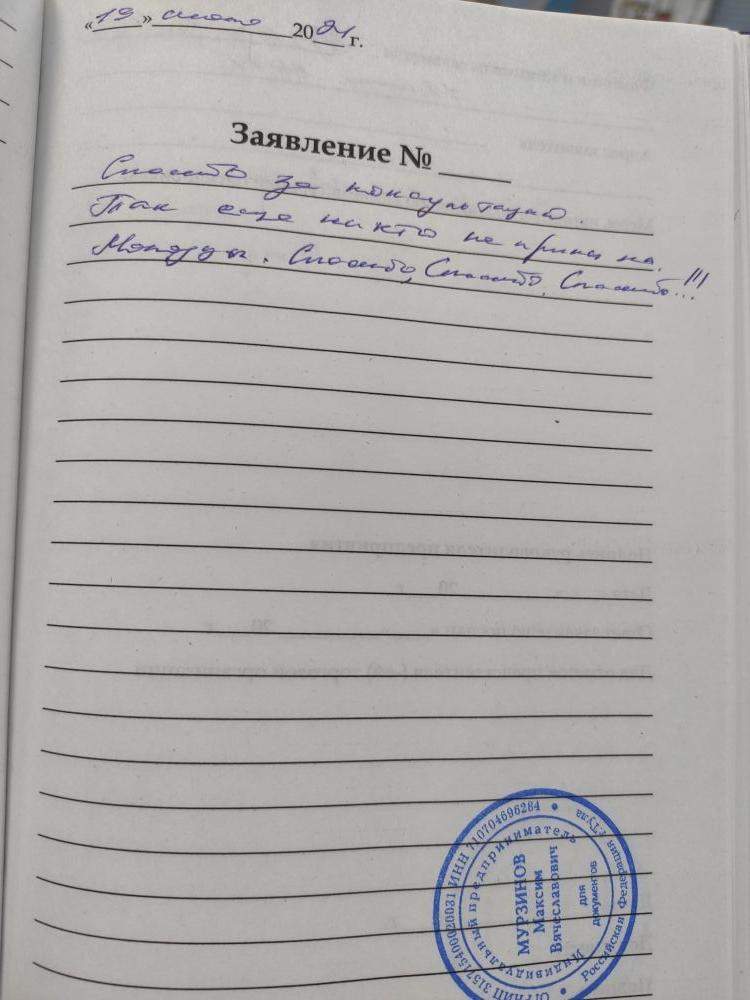 «19» 2021 г.
Заявление №
Спасибо за консультацию.
Так еще никто не
Молодцы. Спасибо, Спасибо, Спасибо...!!!
ОГРНИП 315715400020031 ИНН 710704696284
Российская Федерация г.Тула
Индивидуальный предприниматель
МУРЗИНОВ
Максим
Вячеславович
для
документов